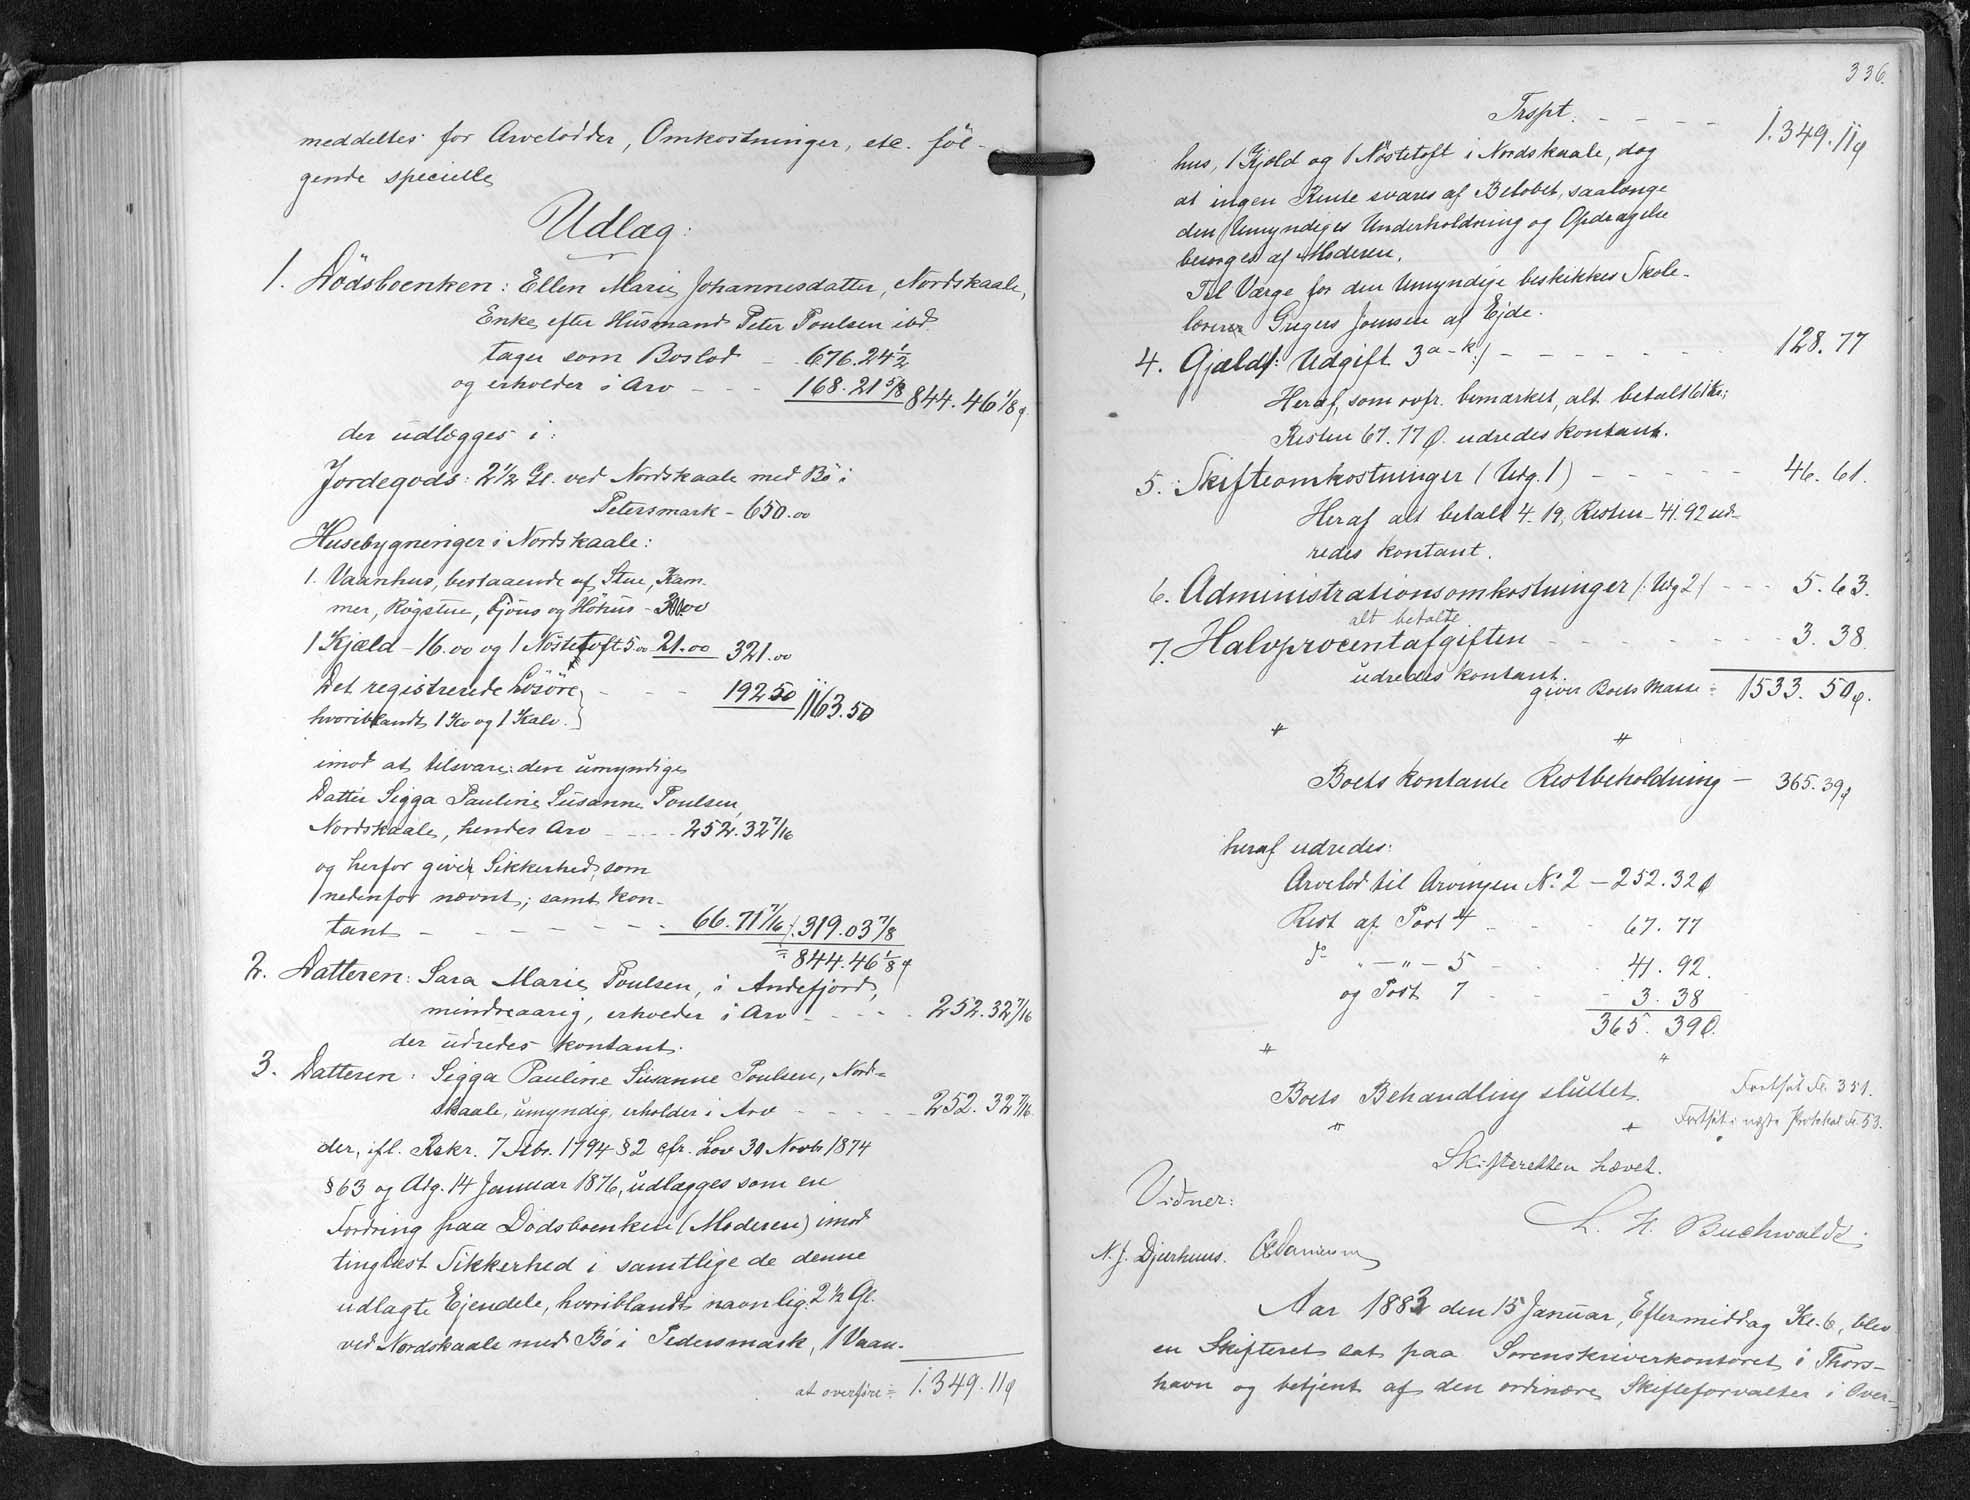 meddeltes for Arvelodder, Omkostninger, etc. föl-
gende specielle
Udlæg:
1. Dödsboenken: Ellen Marie Johannesdatter, Nordskaale,
Enke efter Husmand Peter Poulsen ibd.
tager som Boslod - 676.24 1/2
og erholder i Arv - - - 168.21 5/8 844.46 1/8 ø
der udlægges i:
Jordegods: 2 1/2 Gl. ved Nordskaale med Bö i
Petersmark - 650.00
Husebygninger i Nordskaale:
1. Vaanhus, bestaaende af Stue, Kam-
mer, Rögstue, Fjöus og Höhus - 300.00
1 Kjæld - 16.00 og 1 Nöstetoft 5.00 21.00 321.00
Det registrerede Lösöre - - - 192.50 1163.50
hvoriblandt 1 Ko og 1 Kalv.
imod at tilsvare: den umyndige
Datter Sigga Pauline Susanne Poulsen,
Nordskaale, hendes Arv - - - - 252.32 7/16
og herfor giver Sikkerhed, som
nedenfor nævnt; samt kon-
tant - - - - - - - 66.71 7/16 ./. 319.03 7/8
= 844.46 1/8 ø
2. Datteren: Sara Marie Poulsen, i Andefjord,
mindreaarig, erholder i Arv - - - - 252.32 7/16
der udredes kontant.
3. Datteren: Sigga Pauline Susanne Poulsen, Nord-
skaale, umyndig, erholder i Arv - - - - - 252.32 7/16
der, ifl. Rskr. 7 Febr. 1794 § 2 cfr. Lov 30 Novbr 1874
§ 63 og Adg. 14 Januar 1876, udlægges som en
Fordring paa Dödsboenken (Moderen) imod
tinglæst Sikkerhed i samtlige de denne
udlagte Ejendele, hvoriblandt navnlig 2 1/2 Gl.
ved Nordskaale med Bö i Pedersmark, 1 Vaan-
at overføre = 1.349.11 ø
336.
Trspt. - - - - 1.349.11 ø
hus, 1 Kjæld og 1 Nöstetoft i Nordskaale, dog
at ingen Rente svares af Beløbet, saalænge
den Umyndiges Underholdning og Opdragelse
besørges af Moderen.
Til Værge for den Umyndige beskikkes Skole-
lærer Gregers Joensen af Ejde.
4. Gjæld /: Udgift 3 a - k :/ - - - - - - 128.77
Heraf, som ovfr. bemærket, alt betalt 61 Kr;
Resten 67.77 Ø. udredes kontant.
5. Skifteomkostninger (Udg. 1) - - - - - 46.61.
Heraf alt betalt 4.19, Resten - 41.92 ud-
redes kontant.
6. Administrationsomkostninger /: Udg 2/ - - - 5.63.
alt betalte
7. Halvprocentafgiften - - - - - - - 3.38.
udredes kontant.
giver Boets Masse = 1533.50 ø.
Boets kontante Restbeholdning - 365.39 ø
heraf udredes:
Arvelod til Arvingen No. 2 - 252.32 ø
Rest af Post 4 - - - 67.77
do " - " - 5 - - 41.92.
og Post 7 - - - 3.38
365.39 Ø.
Boets Behandling sluttet. Fortsat Fo. 351.
Fortsat i næste Protokol Fo. 53.
Skifteretten hævet.
Vidner: L. H. Buchwaldt
N. J. Djurhuus.
Aar 1883 den 15 Januar, Eftermiddag Kl. 6, blev
en Skifteret sat paa Sorenskriverkontoret i Thors-
havn og betjent af den ordinære Skifteforvalter i Over-